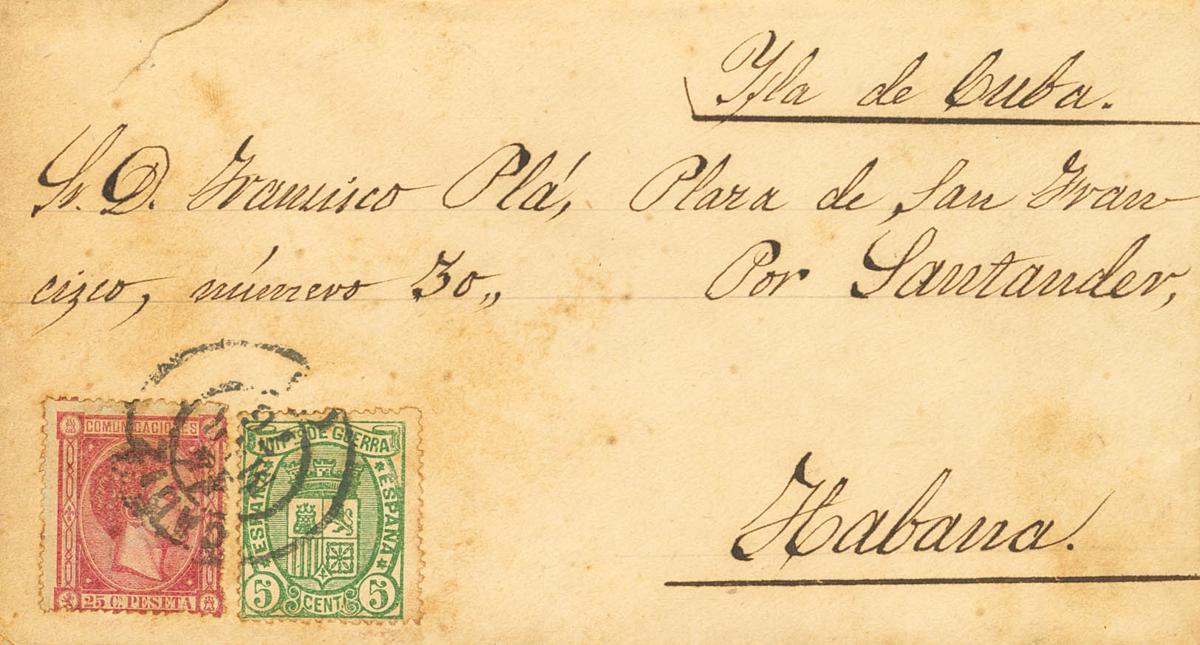 Ysla de Cuba.
Sr. D. Francisco Plá, Plaza de San Fran-
cizco, número 30,, Por Santander,
Habana.
COMUNICACIONES
25 C. PESETA
IMPto DE GUERRA
ESPAÑA ESPAÑA
5 CENT. 5